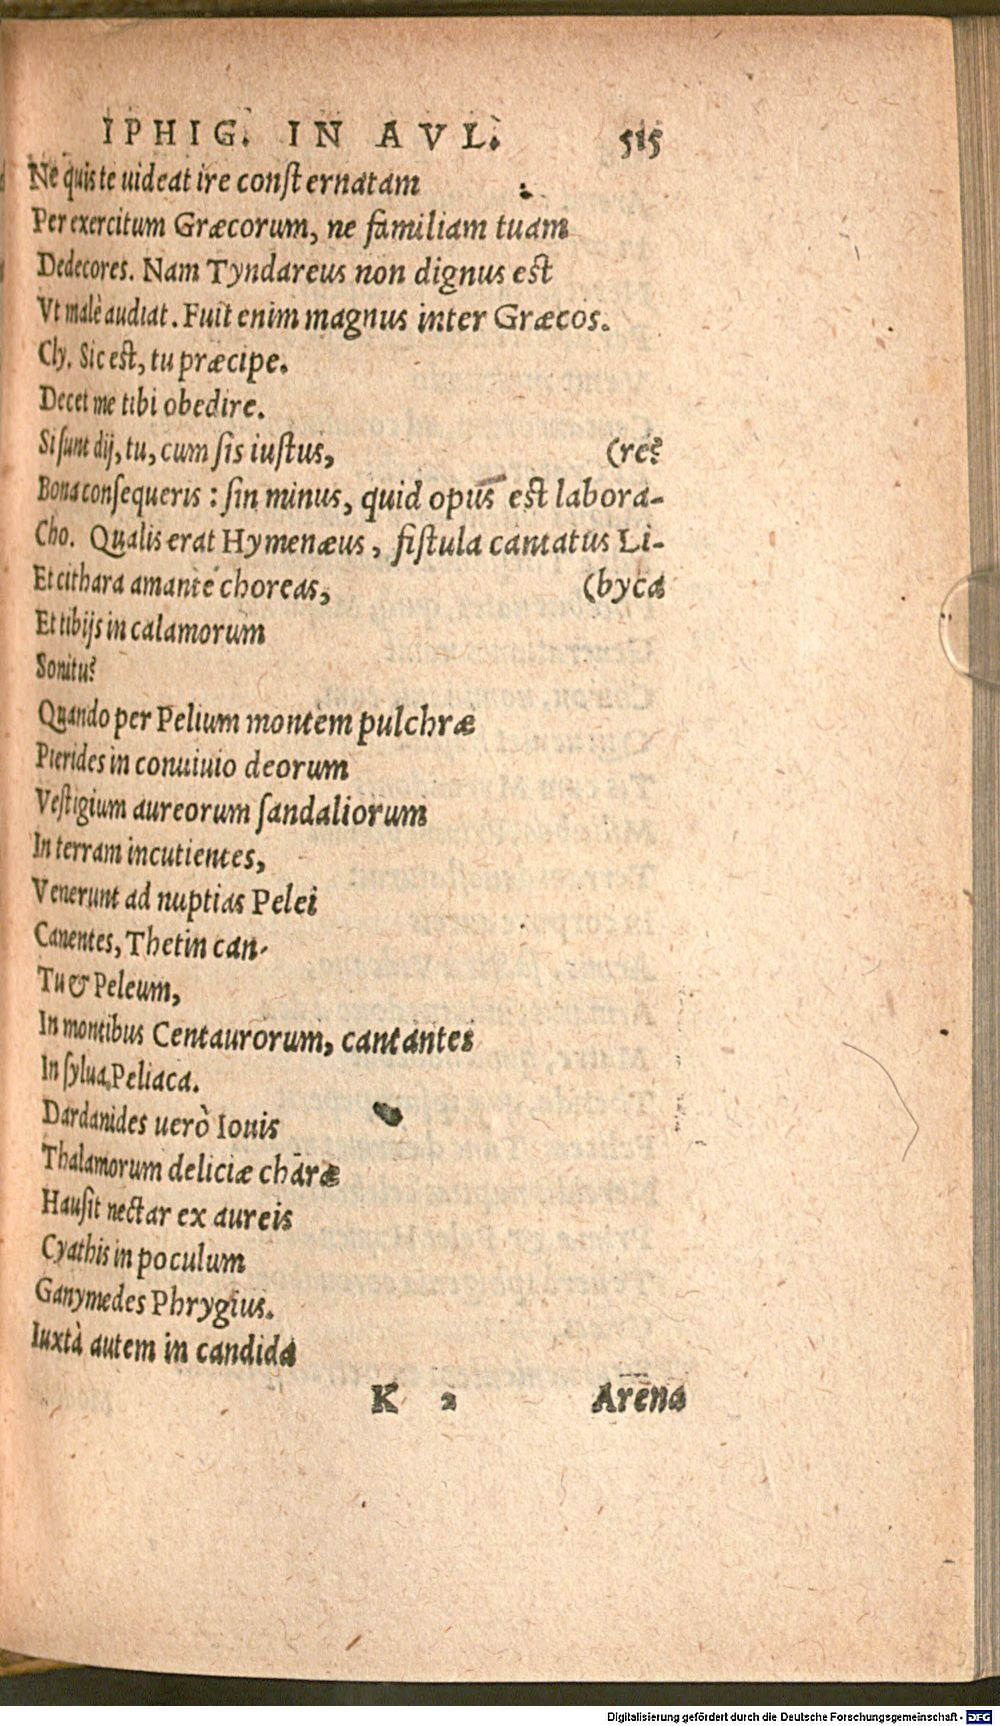 IPHIG. IN AVL. 515
Ne quis te uideat ire consternatam
Per exercitum Græcorum, ne familiam tuam
Dedecores. Nam Tyndareus non dignus est
Vt malè audiat. Fuit enim magnus inter Græcos.
Cly. Sic est, tu præcipe.
Decet me tibi obedire.
Si sunt dij, tu, cum sis iustus, (re?
Bona consequeris: sin minus, quid opus est labora-
Cho. Qualis erat Hymenæus, fistula cantatus Li-
Et cithara amante choreas, (byca
Et tibijs in calamorum
Sonitu?
Quando per Pelium montem pulchræ
Pierides in conuiuio deorum
Vestigium aureorum sandaliorum
In terram incutientes,
Venerunt ad nuptias Pelei
Canentes, Thetin can-
Tu & Peleum,
In montibus Centaurorum, cantantes
In sylua Peliaca.
Dardanides uerò Iouis
Thalamorum deliciæ charæ
Hausit nectar ex aureis
Cyathis in poculum
Ganymedes Phrygius.
Iuxtà autem in candida
K 2 Arena
Digitalisierung gefördert durch die Deutsche Forschungsgemeinschaft - DFG